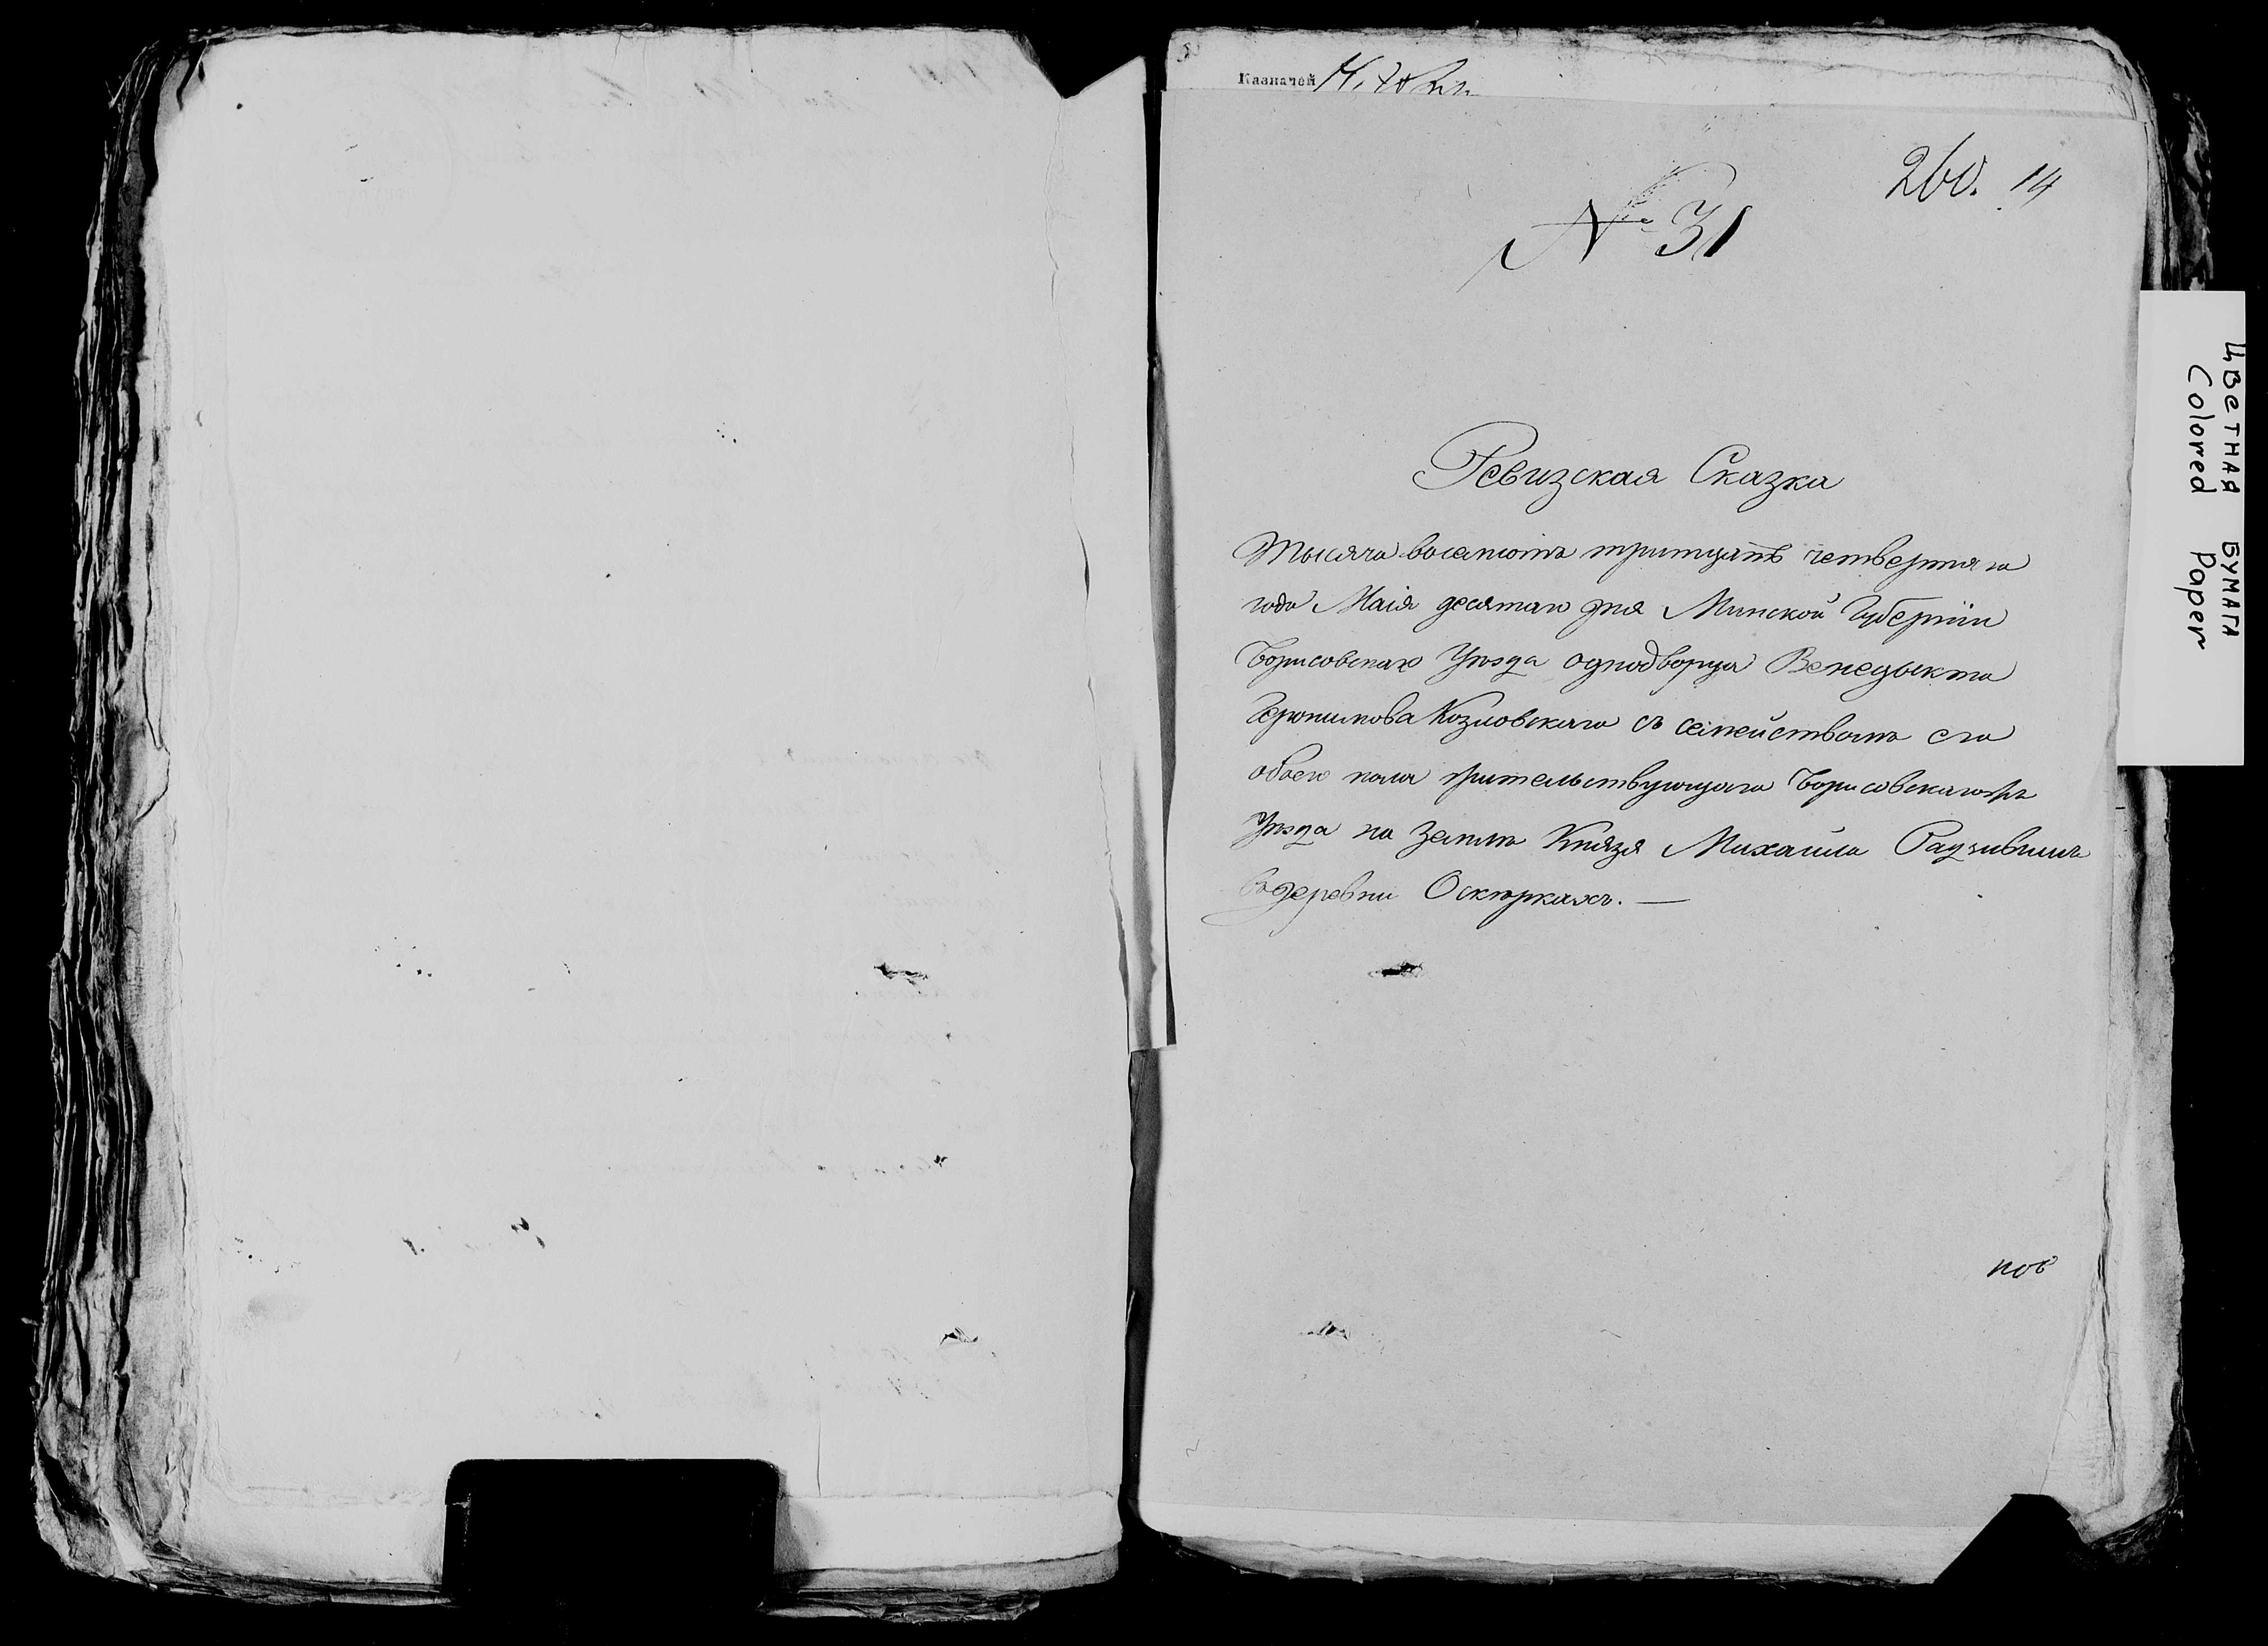 Казначей
260. 14
№ 31
Ревизская Сказка
Тысяча восемсотъ тритцать четвертаго
года Маія десятаго дня Минской Губерніи
Борисовскаго Уѣзда однодворца Венедыкта
Іеронимова Козловскаго съ семействомъ его
обоего пола жительствующаго Борисовскагожъ
Уѣзда на Землѣ Князя Михаила Радзивила
въ деревни Оскѣркахъ. —
ЦВЕТНАЯ БУМАГА
Colored Paper